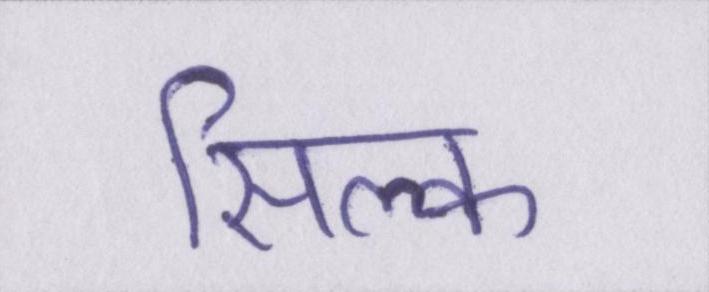 सिल्क